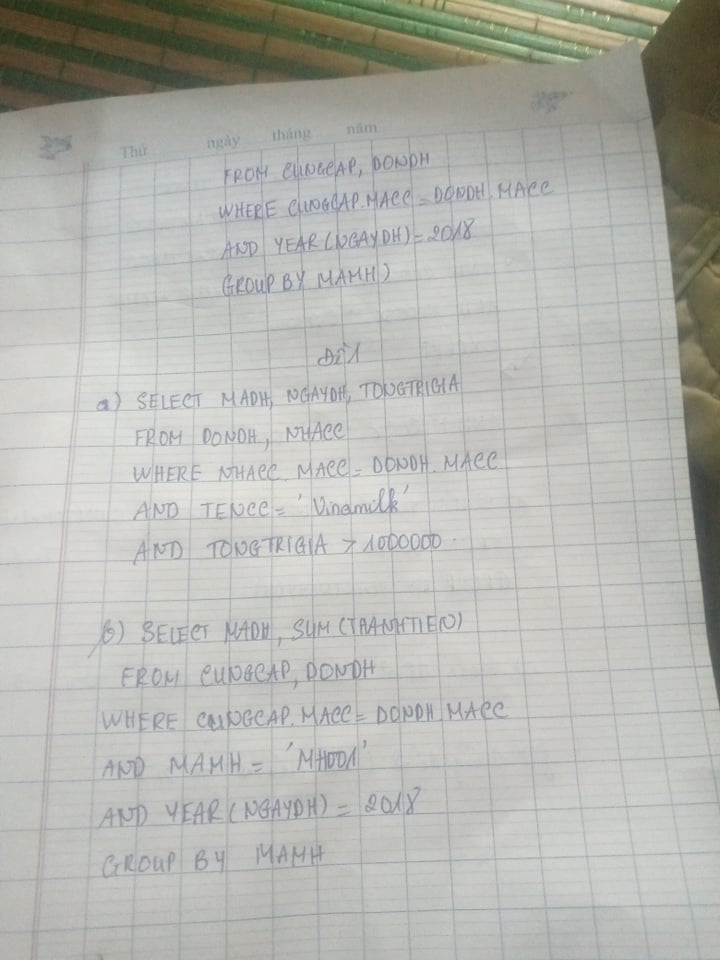 Thứ ngày tháng năm
FROM CUNGCAP, DONDH
WHERE CUNGCAP.MACC = DONDH.MACC
AND YEAR(NGAYDH) = 2018
GROUP BY MAMH)
ĐỀ 1
a) SELECT MADH, NGAYDH, TONGTRIGIA
FROM DONDH, NHACC
WHERE NHACC.MACC = DONDH.MACC
AND TENCC = 'Vinamilk'
AND TONGTRIGIA > 1000000
b) SELECT MADH, SUM(THANHTIEN)
FROM CUNGCAP, DONDH
WHERE CUNGCAP.MACC = DONDH.MACC
AND MAMH = 'MH001'
AND YEAR(NGAYDH) = 2018
GROUP BY MAMH